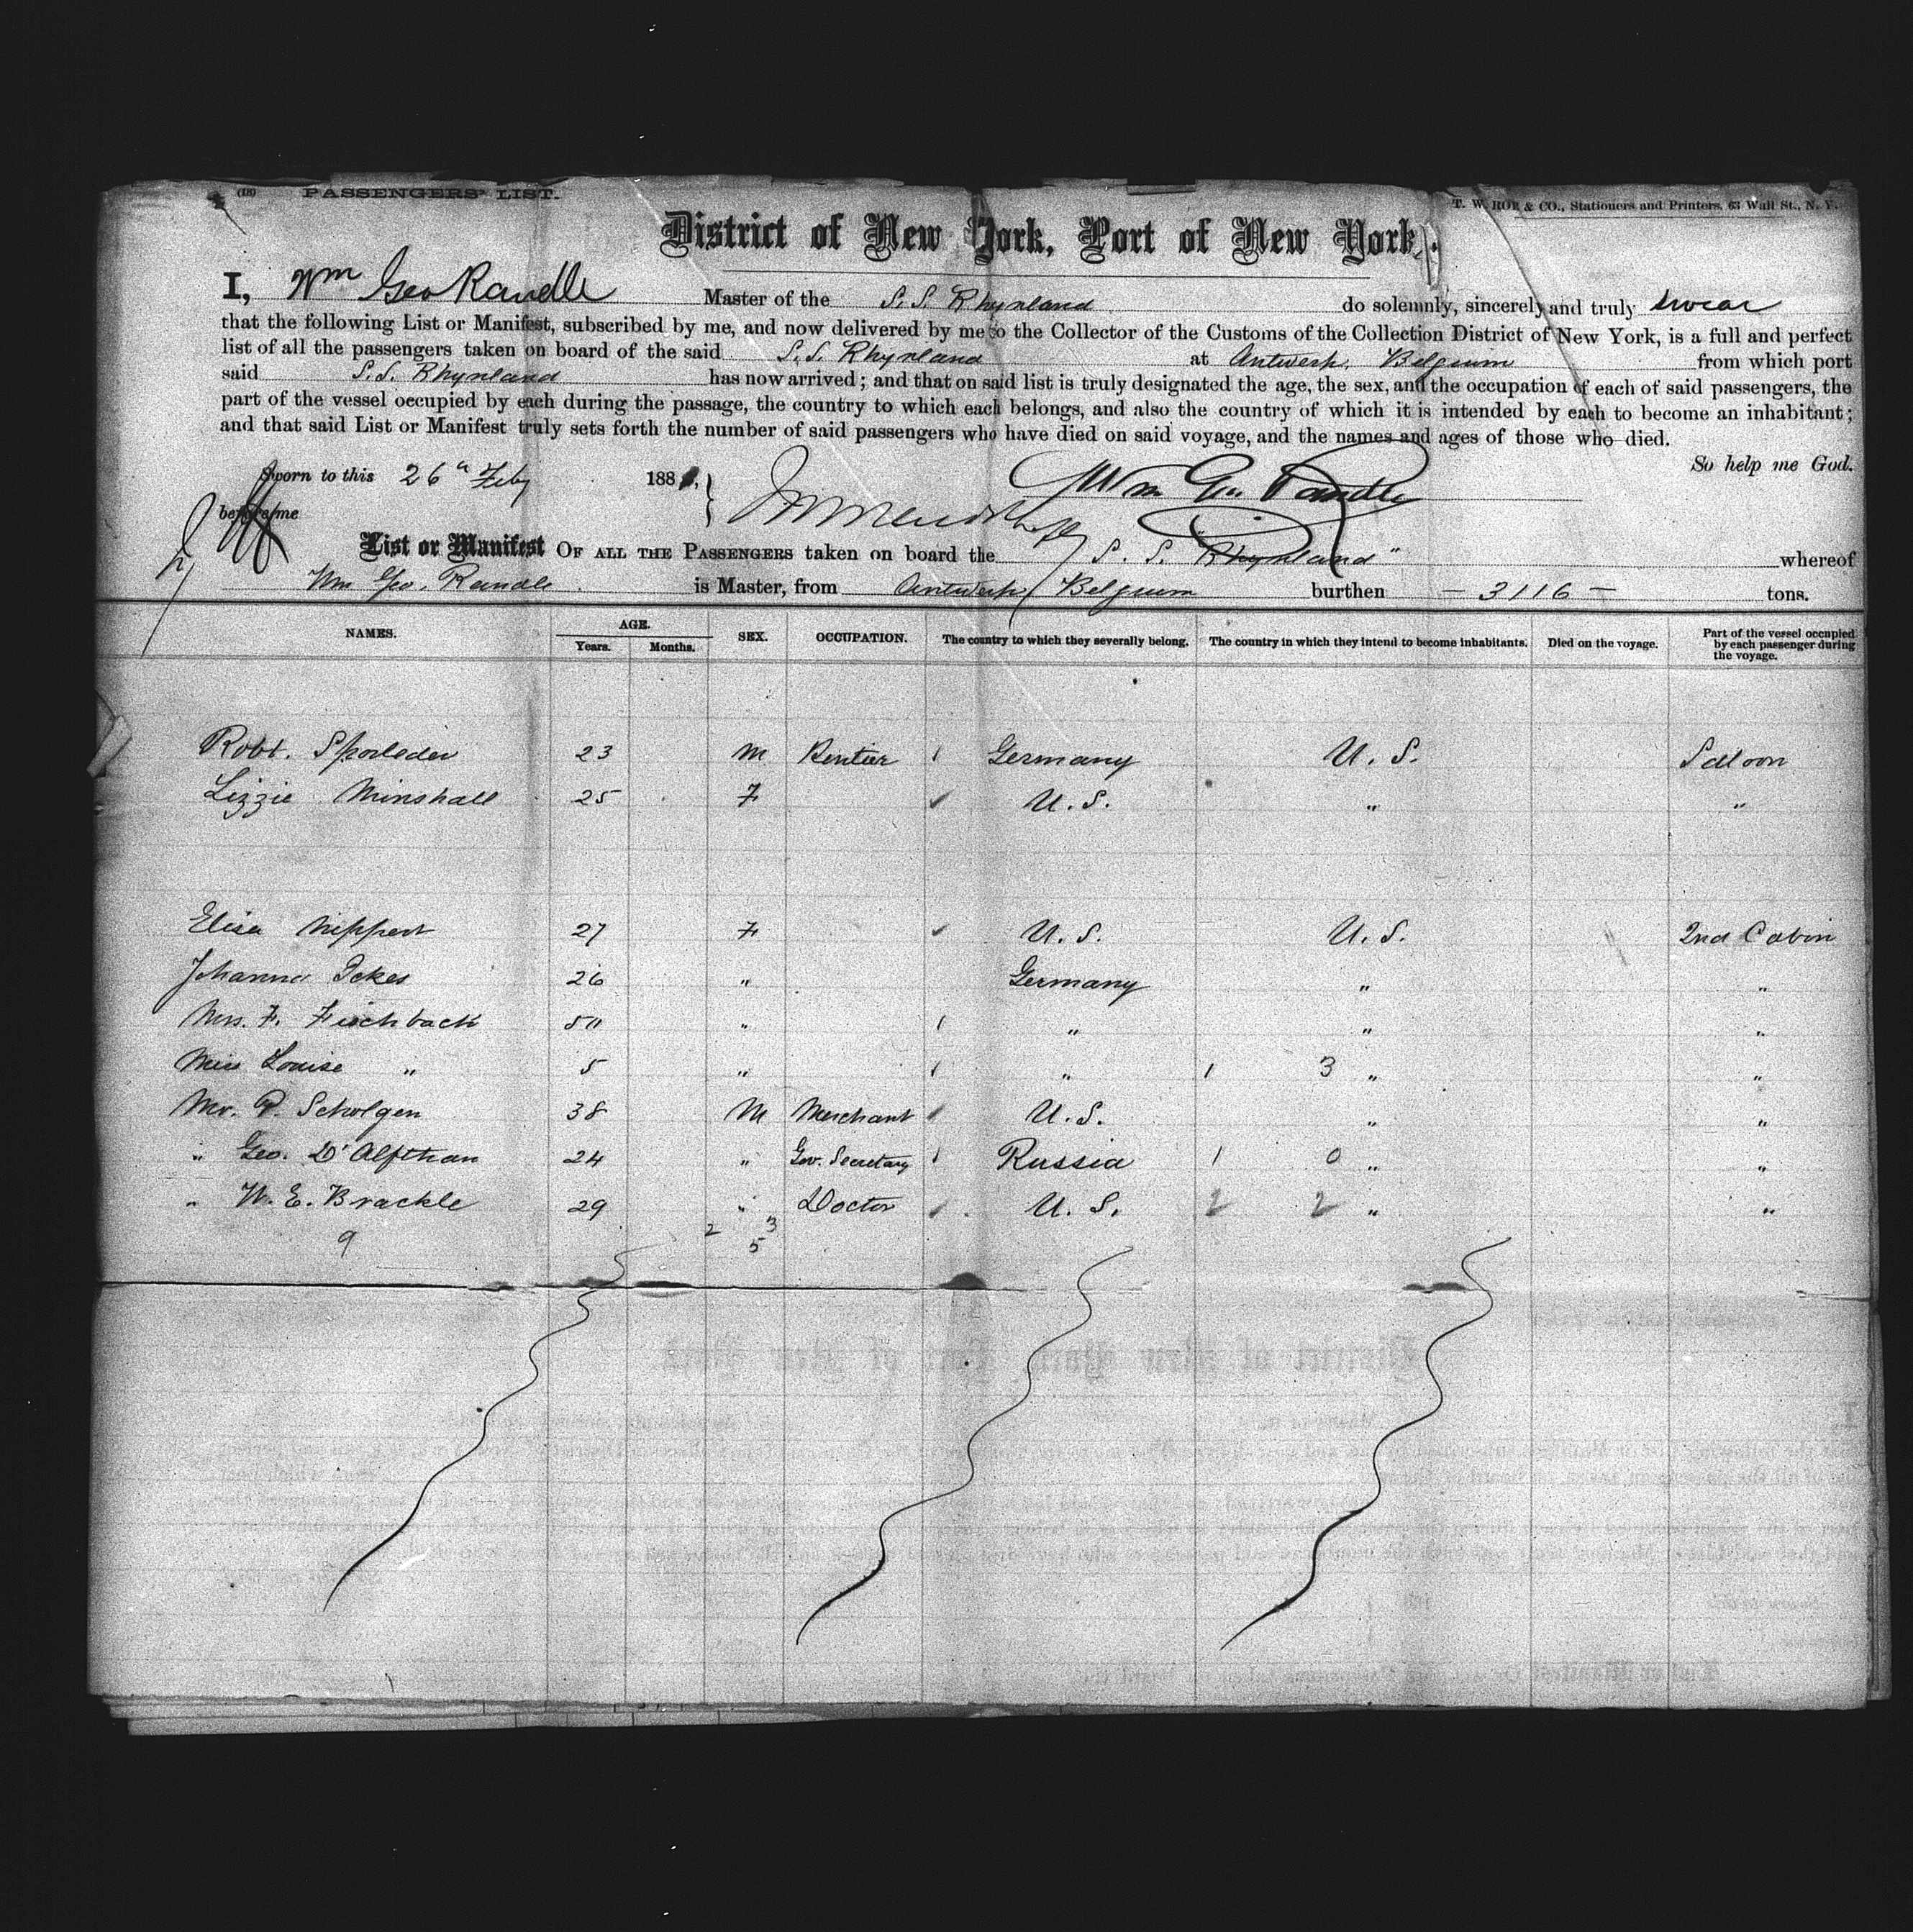 (18) PASSENGERS' LIST.
T. W. ROE & CO., Stationers and Printers, 63 Wall St., N. Y.
District of New York, Port of New York.
I, Wm Geo Randle Master of the S. S. Rhynland do solemnly, sincerely and truly swear
that the following List or Manifest, subscribed by me, and now delivered by me to the Collector of the Customs of the Collection District of New York, is a full and perfect
list of all the passengers taken on board of the said S. S. Rhynland at Antwerp, Belgium from which port
said S. S. Rhynland has now arrived; and that on said list is truly designated the age, the sex, and the occupation of each of said passengers, the
part of the vessel occupied by each during the passage, the country to which each belongs, and also the country of which it is intended by each to become an inhabitant;
and that said List or Manifest truly sets forth the number of said passengers who have died on said voyage, and the names and ages of those who died.
So help me God.
Sworn to this 26" Feby 188 , Wm Geo Randle
before me
List or Manifest OF ALL THE PASSENGERS taken on board the S. S. "Rhynland" whereof
Wm Geo. Randle is Master, from Antwerp Belgium burthen — 3116 — tons.
NAMES. AGE. Years. Months. SEX. OCCUPATION. The country to which they severally belong. The country in which they intend to become inhabitants. Died on the voyage. Part of the vessel occupied by each passenger during the voyage.
Robt. Sporleder 23 M Rentier 1 Germany U. S. Saloon
Lizzie Minshall 25 F ✓ U. S. " "
Elisa Nippert 27 F ✓ U. S. U. S. 2nd Cabin
Johanna Ickes 26 " Germany " "
Mrs. F. Fischbach 50 " 1 " " "
Miss Louise " 5 " 1 " 1 3 " "
Mr. P. Scholgen 38 M Merchant U. S. " "
" Geo. D'Alfthan 24 " Gov. Secretary 1 Russia 1 0 " "
" W. E. Brackle 29 " Doctor ✓ U. S. 2 2 " "
9 2 3
5